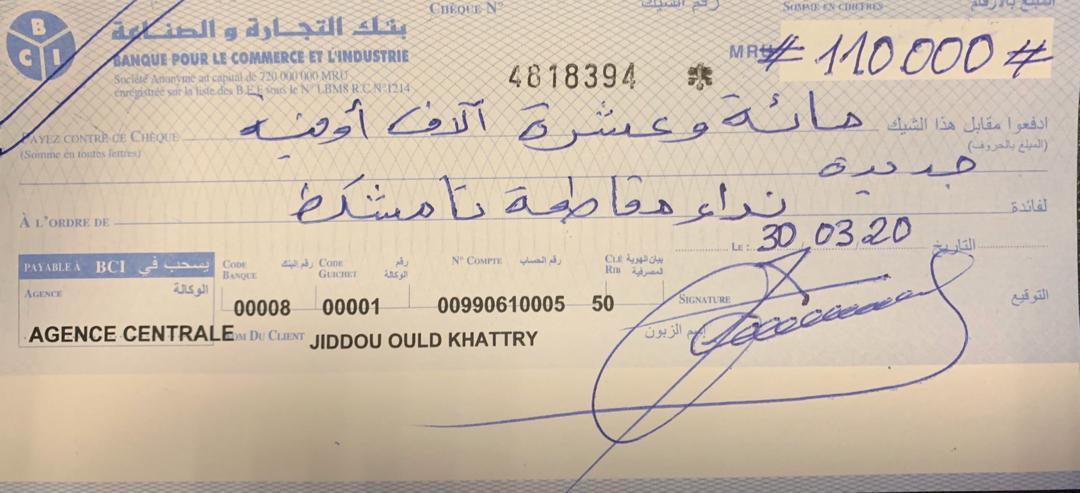 BCI
بنك التجارة و الصناعة
BANQUE POUR LE COMMERCE ET L'INDUSTRIE
Société Anonyme au capital de 720 000 000 MRU
enregistrée sur la liste des B.E.E sous le N° LBM8 R.C.N°1214
CHÈQUE N° رقم الشيك
4818394
SOMME EN CHIFFRES المبلغ بالأرقام
MRU # 110.000 #
PAYEZ CONTRE CE CHÈQUE مائة وعشرة آلاف أوقية ادفعوا مقابل هذا الشيك
(Somme en toutes lettres) (المبلغ بالحروف)
جديدة
À L'ORDRE DE نداء مقاطعة تامشكط لفائدة
LE: 30.03.20 التاريخ
PAYABLE À BCI يسحب في
AGENCE الوكالة
AGENCE CENTRALE
CODE BANQUE رقم البنك
00008
CODE GUICHET رقم الوكالة
00001
N° COMPTE رقم الحساب
00990610005
CLÉ RIB بيان الهوية المصرفية
50
SIGNATURE التوقيع
NOM DU CLIENT JIDDOU OULD KHATTRY إسم الزبون